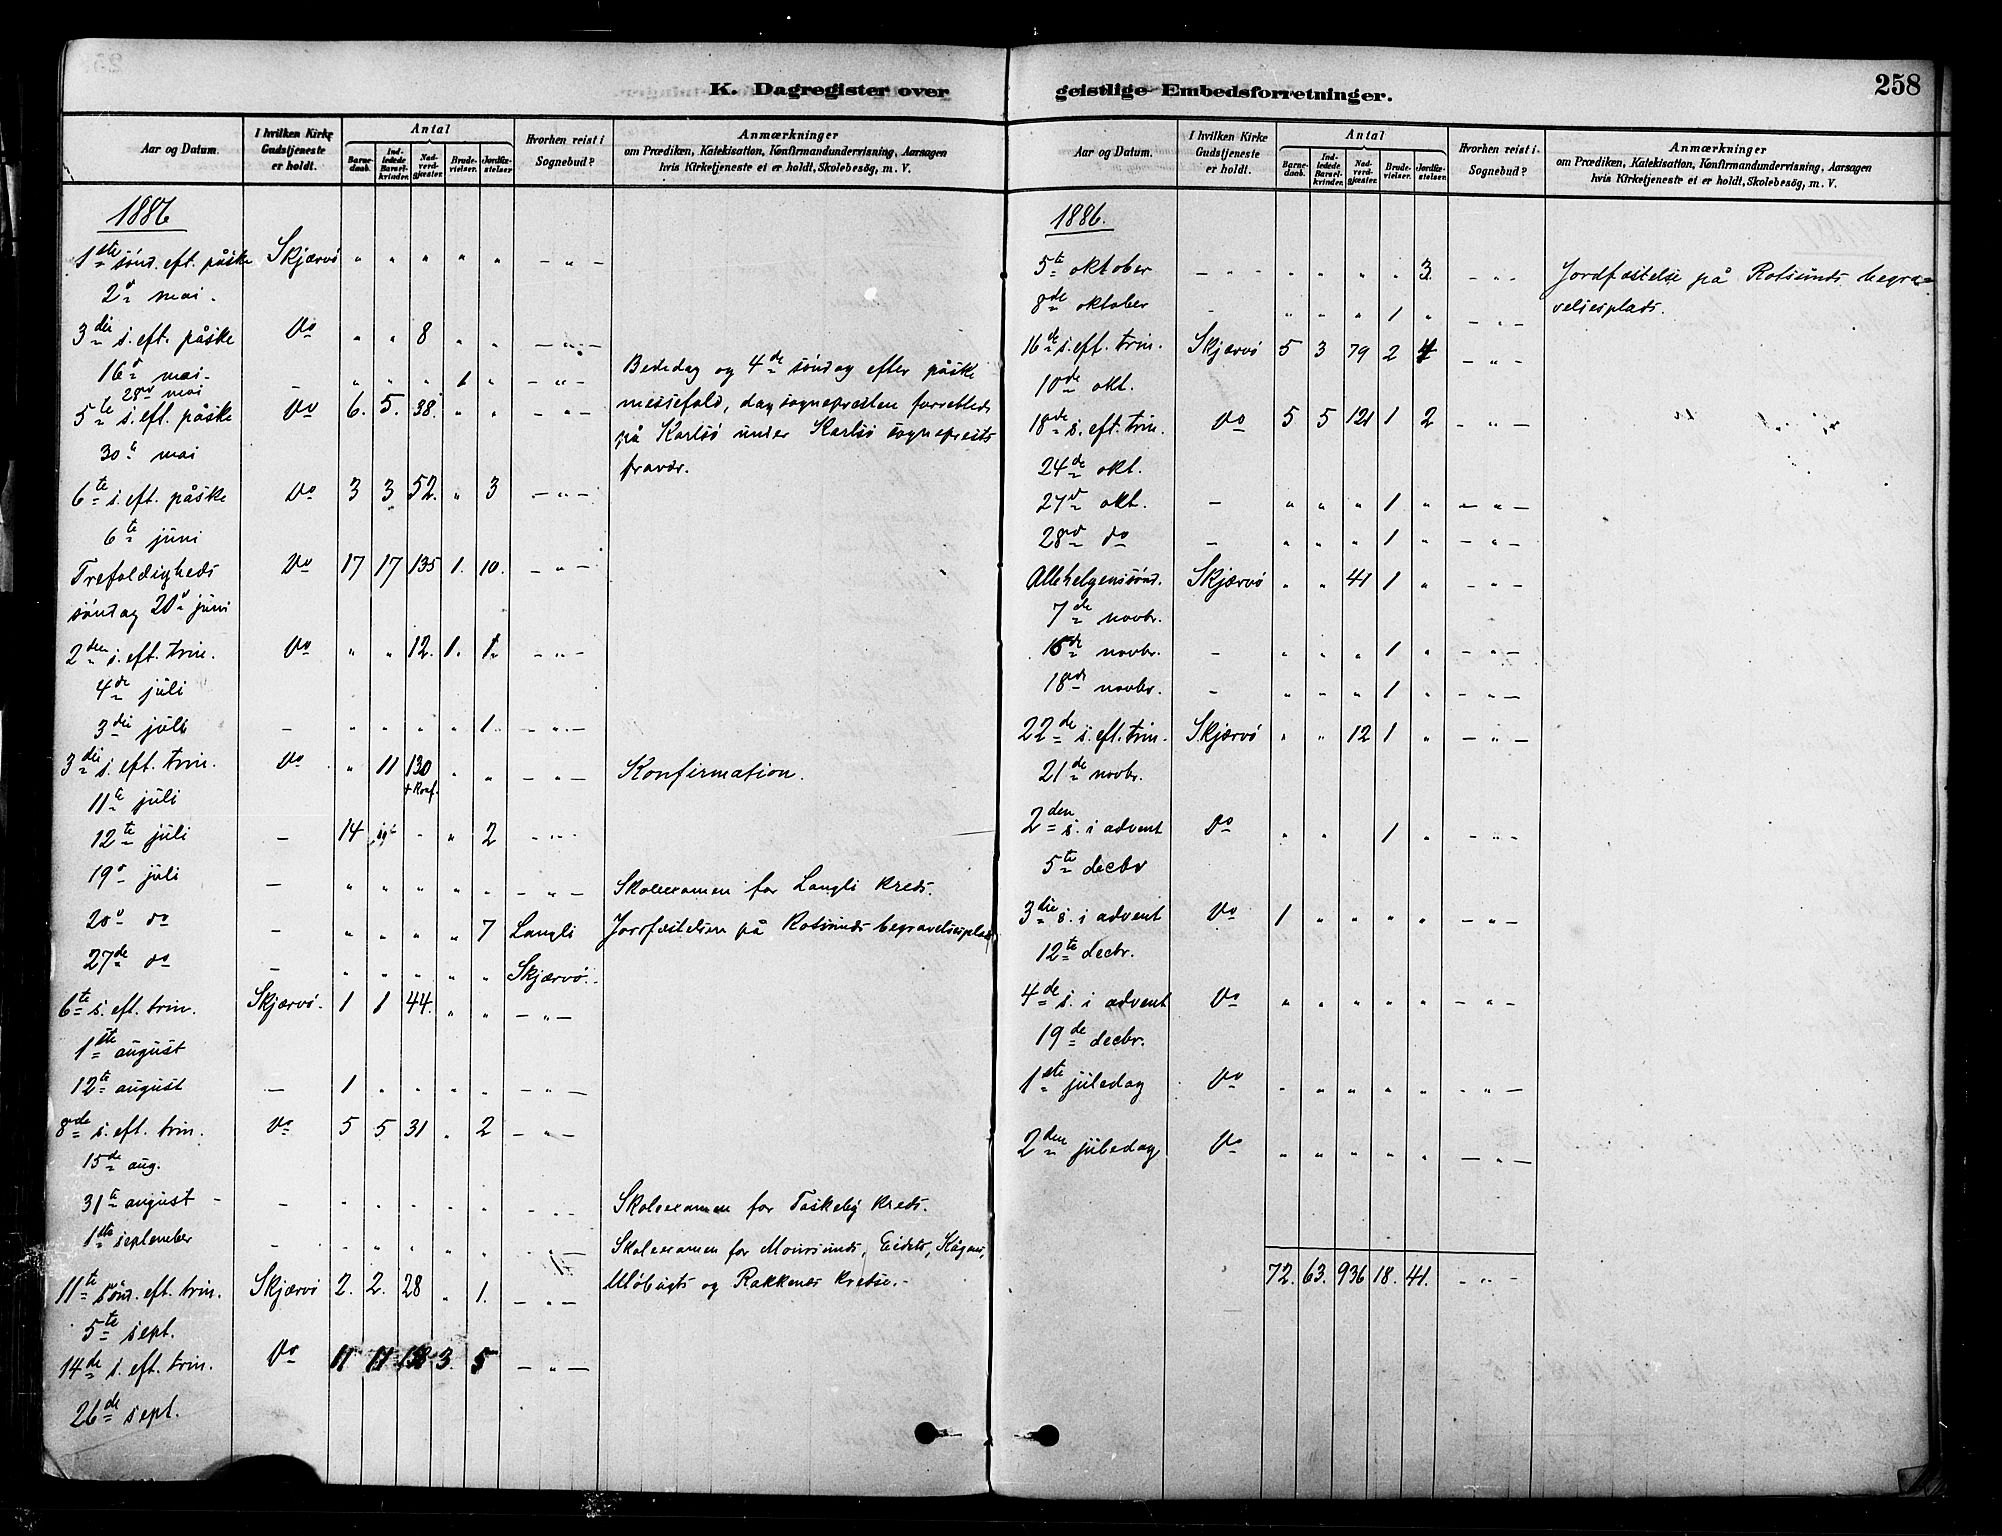 K. Dagregister over
Aar og Datum.
I hvilken Kirke Gudstjeneste er holdt.
Antal
Barnedaab.
Indledede Barselkvinder.
Nadverdgjæster.
Brudevielser.
Jordfæstelser
Hvorhen reist i Sognebud?
Anmærkninger
om Prædiken, Katekisation, Konfirmandundervisning, Aarsagen
hvis Kirketjeneste ei er holdt, Skolebesøg, m. V.
1886
1ste sönd. eft. påske Skjærvö " " " " " — " —
2d mai.
3die s. eft. påske Do " " 8 " " — " —
16d mai. — " " " 1 " — " — Bededag og 4de söndag efter påske
28nd mai
5te s. eft. påske Do 6. 5. 38. " " — " — messefald, da sognepresten forrettede
på Karlsö under Karlsö sogneprests
30d mai
fravær.
6te s. eft. påske Do 3 3 52. " 3 — " —
6te juni
Trefoldigheds Do 17 17 135 1. 10. — " —
söndag 20d juni
2den s. eft. trin. Do " " 12. 1. 1 — " —
4de juli
3die juli — " " " " 1 — " —
3die s. eft. trin. Do " 11 130 " " — " — Konfirmation.
+ Konf.
11te juli
12te juli — 14 - " 2 — " —
19d juli — " " " " " — " — Skoleexamen for Langli kreds.
20d do — " " " " 7 Langli Jordfæstelsen på Rotsunds begravelsesplads
27de do — " " " " " Skjærvö.
6te s. eft. trin. Skjærvö. 1 1 44. " " — " —
1ste august
12te august — 1 " " " " — " —
8de s. eft. trin. Do 5 5 31 " 2 — " —
15de aug.
31te august — " " " " " — " — Skoleexamen for Taskeby kreds.
1ste september — " " " " " — " — Skoleexamen for Maursunds, Eidets, Kågens,
Måbugts og Rakkenes kredse.-
11te sönd. eft. trin. Skjærvö 2. 2. 28 " 1. — " —
5te sept.
14de s. eft. trin. Do 11 11 138 3. 5 — " —
26de sept.
geistlige Embedsforretninger.
258
Aar og Datum.
I hvilken Kirke Gudstjeneste er holdt.
Antal
Barnedaab.
Indledede Barselkvinder.
Nadverdgjæster.
Brudevielser.
Jordfæstelser.
Hvorhen reist i Sognebud?
Anmærkninger
om Prædiken, Katekisation, Konfirmandundervisning, Aarsagen
hvis Kirketjeneste ei er holdt, Skolebesøg, m. V.
1886.
5te oktober — " — " " " " 3 — " — Jordfæstelse på Rotsunds begra-
8de oktober — " " " 1 " — " — velsesplads.
16de s. eft. trin. Skjærvö 5 3 79 2 4 — " —
10de okt.
18de s. eft. trin. Do 5 5 121 1 2 — " —
24de okt.
27d okt. — " " " 1 " — " —
28nd do — " " " 1 " — " —
Allehelgenssönd. Skjærvö " " 41 1 " — " —
7de novbr.
15de novbr. — " " " 1 " — " —
18de novbr. — " " " 1 " — " —
22de s. eft. trin. Skjærvö " " 12 1 " — " —
21de novbr.
2den s. i advent Do " " 1 " — " —
5te decbr
3die s. i advent Do 1 " " " " — " —
12te decbr.
4de s. i advent Do " " " " " — " —
19de decbr.
1ste juledag Do " " " " " — " —
2den juledag Do " " " " " — " —
72. 63. 936 18. 41. — " —